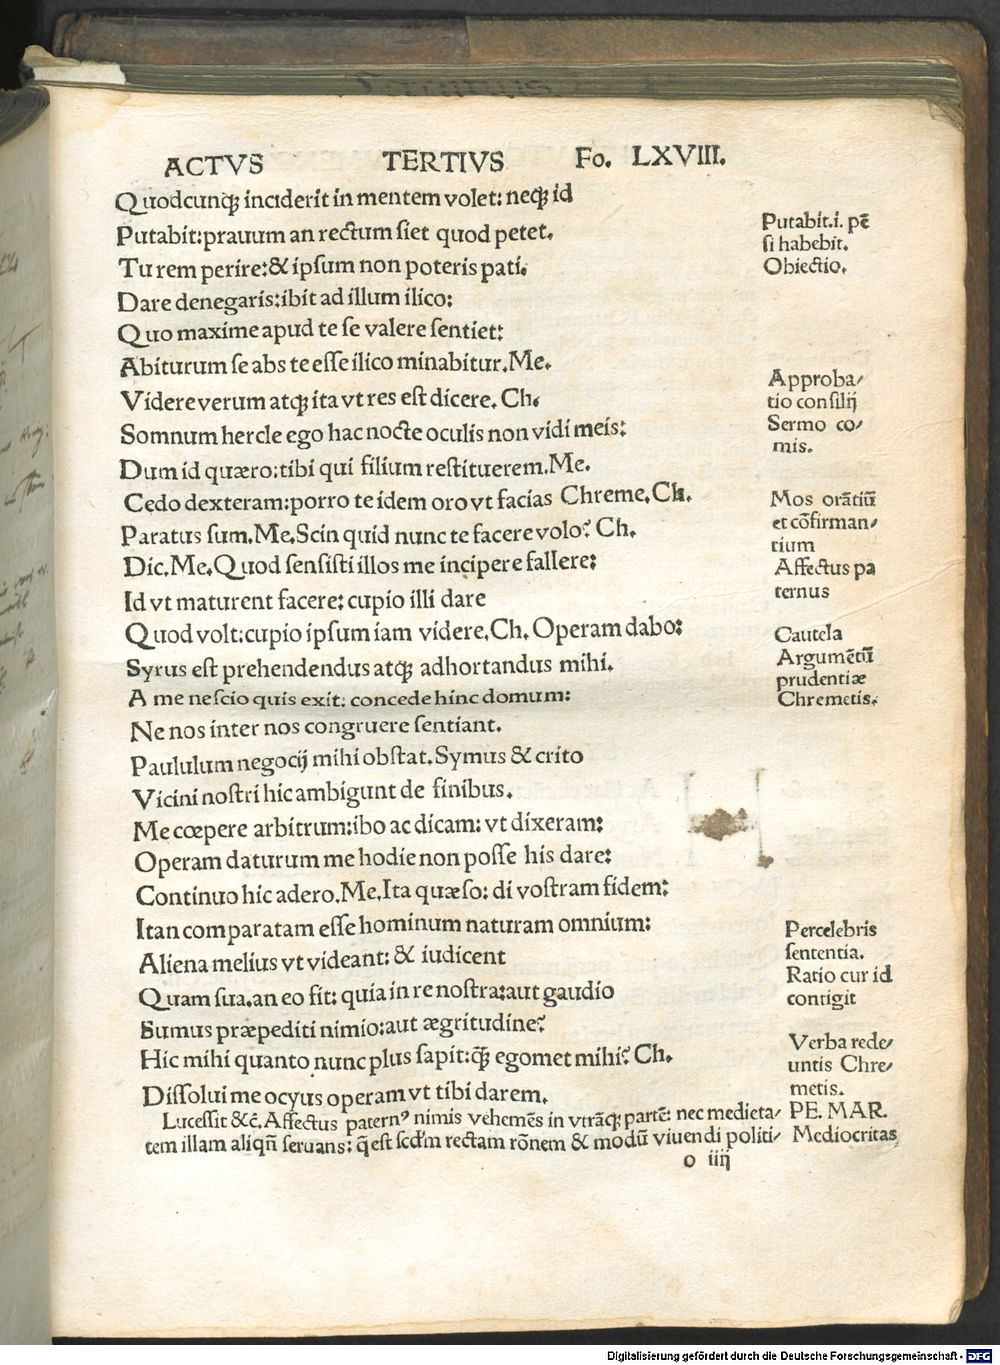 ACTVS TERTIVS Fo. LXVIII.
Quodcunqꝫ inciderit in mentem volet: neqꝫ id
Putabit:prauum an rectum siet quod petet.
Tu rem perire:& ipsum non poteris pati.
Dare denegaris:ibit ad illum ilico:
Quo maxime apud te se valere sentiet:
Abiturum se abs te esse ilico minabitur.Me.
Videre verum atqꝫ ita vt res est dicere. Ch.
Somnum hercle ego hac nocte oculis non vidi meis:
Dum id quæro:tibi qui filium restituerem.Me.
Cedo dexteram:porro te idem oro vt facias Chreme.Ch.
Paratus sum.Me.Scin quid nunc te facere volo? Ch.
Dic.Me.Quod sensisti illos me incipere fallere:
Id vt maturent facere: cupio illi dare
Quod volt:cupio ipsum iam videre.Ch. Operam dabo:
Syrus est prehendendus atqꝫ adhortandus mihi.
A me nescio quis exit: concede hinc domum:
Ne nos inter nos congruere sentiant.
Paululum negocij mihi obstat.Symus & crito
Vicini nostri hic ambigunt de finibus.
Me cœpere arbitrum:ibo ac dicam: vt dixeram:
Operam daturum me hodie non posse his dare:
Continuo hic adero.Me.Ita quæso: di vostram fidem:
Itan comparatam esse hominum naturam omnium:
Aliena melius vt videant: & iudicent
Quam sua.an eo fit: quia in re nostra:aut gaudio
Sumus præpediti nimio:aut ægritudine?
Hic mihi quanto nunc plus sapit:qꝫ̃ egomet mihi? Ch.
Dissolui me ocyus operam vt tibi darem.
Lucessit &c̃. Affectus patern⁹ nimis vehemẽs in vtrãqꝫ partẽ: nec medieta/
tem illam aliqñ seruans: q̃ est scd'm rectam rõnem & modũ viuendi politi/
o iiij
Putabit.i. pẽ
si habebit.
Obiectio.
Approba/
tio consilij
Sermo co/
mis.
Mos orãtiũ
et cõfirman/
tium
Affectus pa
ternus
Cautela
Argumẽtũ
prudentiæ
Chremetis.
Percelebris
sententia.
Ratio cur id
contigit
Verba rede/
untis Chre/
metis.
PE. MAR.
Mediocritas
Digitalisierung gefördert durch die Deutsche Forschungsgemeinschaft - DFG